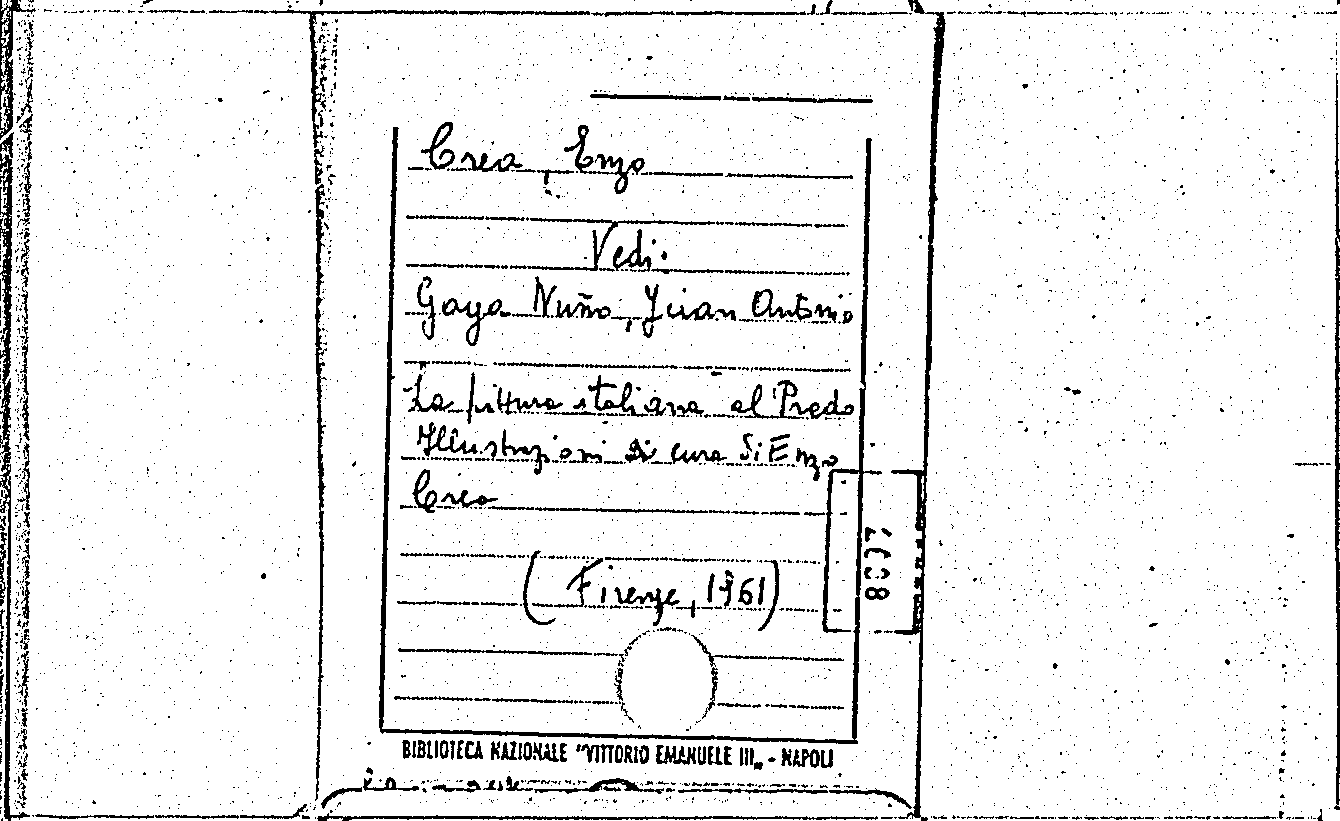 Crea, Enzo
Vedi:
Gaya Nuño, Juan Antonio
La pittura italiana al Prado
Illustrazioni a cura di Enzo
Crea
(Firenze, 1961)
BIBLIOTECA NAZIONALE "VITTORIO EMANUELE III„ - NAPOLI